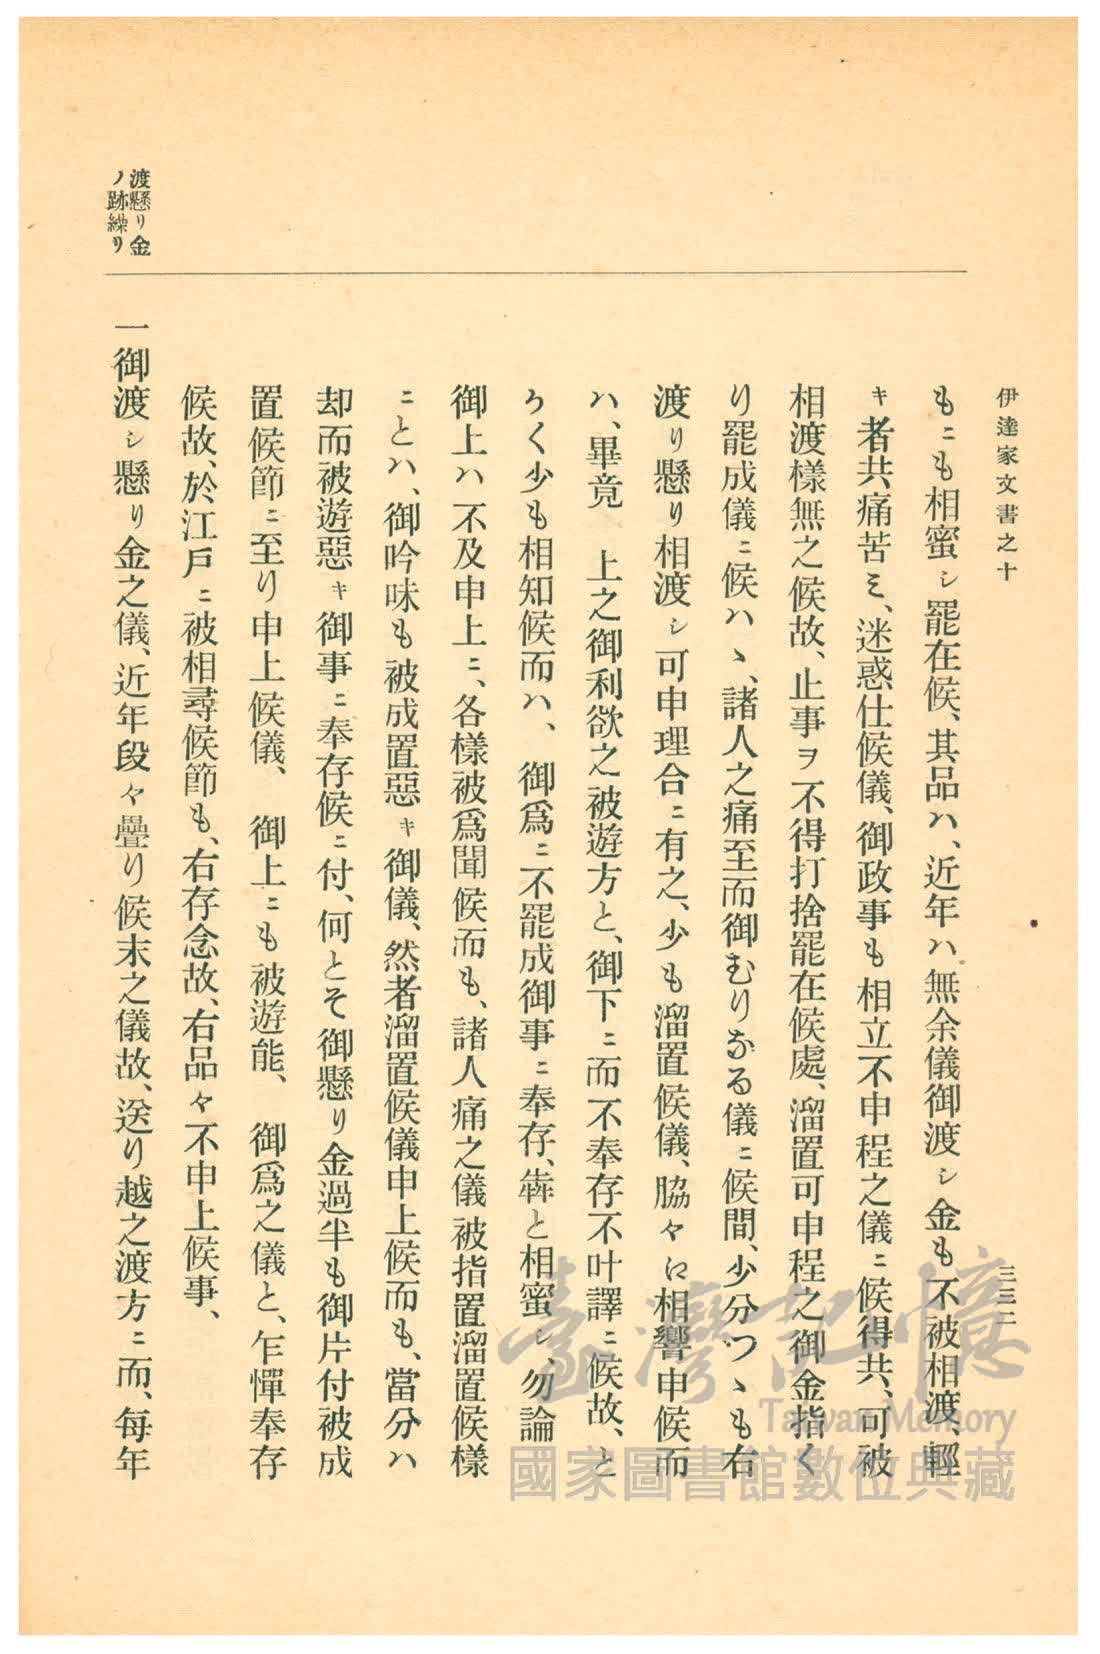 伊達家文書之十
三三二
もニも相蜜シ罷在候、其品ハ、近年ハ無余儀御渡シ金も不被相渡、輕
キ者共痛苦ミ、迷惑仕候儀、御政事も相立不申程之儀ニ候得共、可被
相渡樣無之候故、止事ヲ不得打捨罷在候處、溜置可申程之御金指く
り罷成儀ニ候ハヽ、諸人之痛至而御むりなる儀ニ候間、少分つヽも右
渡り懸り相渡シ可申理合ニ有之、少も溜置候儀、脇々に相響申候而
ハ、畢竟　上之御利欲之被遊方と、御下ニ而不奉存不叶譯ニ候故、と
かく少も相知候而ハ、　御爲ニ不罷成御事ニ奉存、犇と相蜜シ、勿論
御上ハ不及申上ニ、各樣被爲聞候而も、諸人痛之儀被指置溜置候樣
ニとハ、御吟味も被成置惡キ御儀、然者溜置候儀申上候而も、當分ハ
却而被遊惡キ御事ニ奉存候ニ付、何とそ御懸り金過半も御片付被成
置候節ニ至り申上候儀、　御上ニも被遊能、　御爲之儀と、乍憚奉存
候故、於江戶ニ被相尋候節も、右存念故、右品々不申上候事、
渡懸り金
ノ跡繰リ
一御渡シ懸り金之儀、近年段々疊り候末之儀故、送り越之渡方ニ而、每年
臺灣記憶
Taiwan Memory
國家圖書館數位典藏